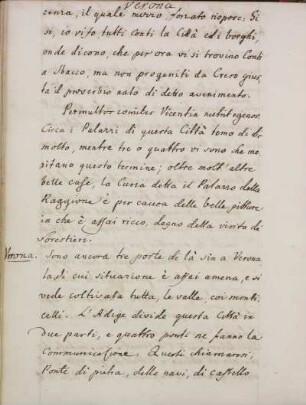 Verona
cenza, il quale mezzo forzato rispose: Si
si, io vi fo tutti Conti la Città ed i borghi,
onde dicono, che per ora vi si trovino Conti
a Sbacco, ma non progeniti da Creso gius-
ta il proverbio nato di detto avenimento.
Permultos comites Vicentia nutrit egenos.
Circa i Palazzi di questa Città temo di dir
molto, mentre tre o quattro vi sono che me-
ritano questo termine; oltre molt' altre
belle case, la Curia detta il Palazzo della
Raggione è per causa delle belle pitture
in che è assai ricco, degno della visita de'
forestieri.
Verona. Sono ancora tre poste de là sin a Verona
la di cui situazione è assai amena, e si
vede coltivata tutta, le valle, coi monti-
celli. L'Adige divide questa Città in
due parti, e quattro ponti ne fanno la
Communicazione. Questi chiamansi,
Ponte di pietra, delle navi, di castello